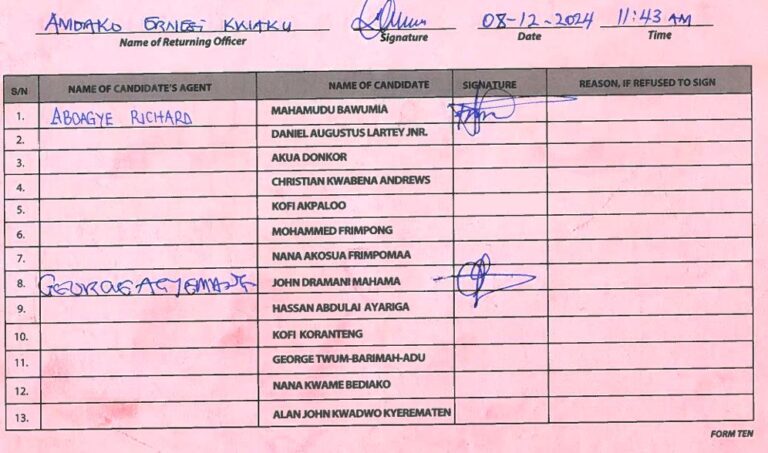 AMOAKO ERNEST KWAKU 08-12-2024 11:43 AM
Name of Returning Officer Signature Date Time
S/N NAME OF CANDIDATE'S AGENT NAME OF CANDIDATE SIGNATURE REASON, IF REFUSED TO SIGN
1. ABOAGYE RICHARD MAHAMUDU BAWUMIA
2. DANIEL AUGUSTUS LARTEY JNR.
3. AKUA DONKOR
4. CHRISTIAN KWABENA ANDREWS
5. KOFI AKPALOO
6. MOHAMMED FRIMPONG
7. NANA AKOSUA FRIMPOMAA
8. GEORGE AGYEMANG JOHN DRAMANI MAHAMA
9. HASSAN ABDULAI AYARIGA
10. KOFI KORANTENG
11. GEORGE TWUM-BARIMAH-ADU
12. NANA KWAME BEDIAKO
13. ALAN JOHN KWADWO KYEREMATEN
FORM TEN